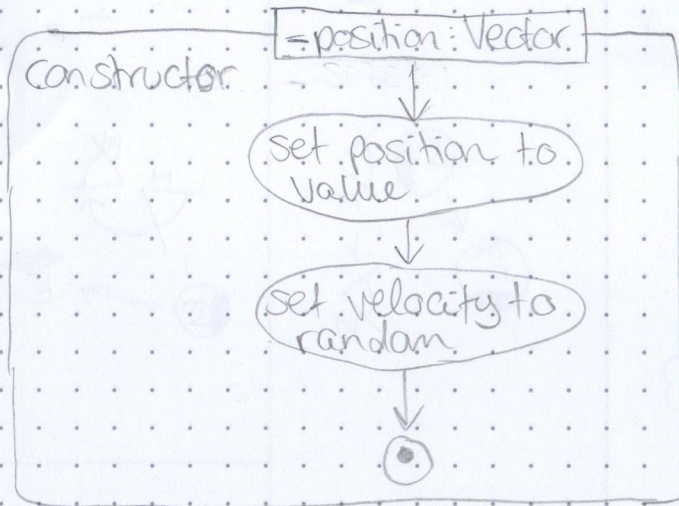 - position: Vector
constructor
set position to
value
set velocity to
random